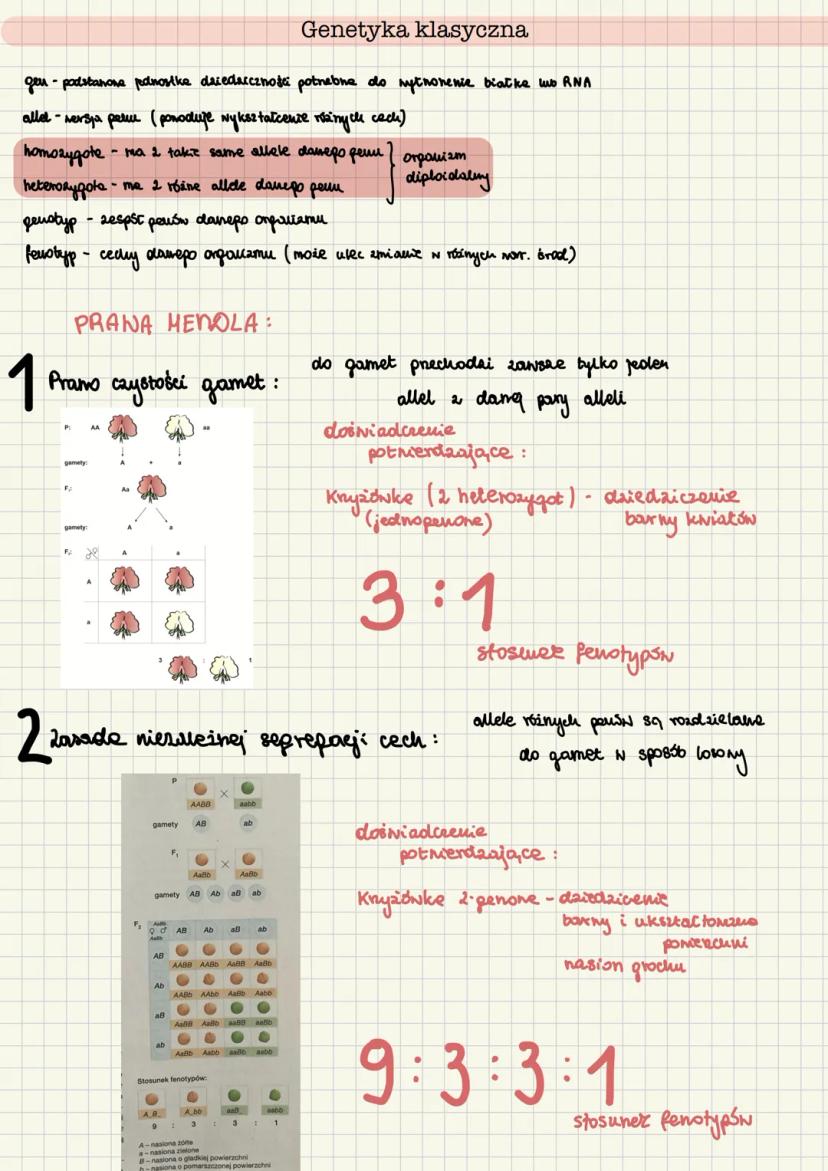 Genetyka klasyczna
gen - podstawowa jednostka dziedziczności potrzebna do wytworzenia białka lub RNA
allel - wersja genu (powoduje wykształcenie różnych cech)
homozygota - ma 2 takie same allele danego genu
heterozygota - ma 2 różne allele danego genu
organizm
diploidalny
genotyp - zespół genów danego organizmu
fenotyp - cechy danego organizmu (może ulec zmianie w różnych war. środ)
PRAWA MENDLA:
1 Prawo czystości gamet:
do gamet przechodzi zawsze tylko jeden
allel z danej pary alleli
P: AA aa
gamety: A + a
F₁: Aa
gamety: A a
F₂: A a
A
a
3 : 1
doświadczenie
potwierdzające:
Krzyżówka (2 heterozygot) - dziedziczenie
(jednogenowe) barwy kwiatów
3:1
stosunek fenotypów
2 Zasada niezależnej segregacji cech:
allele różnych genów są rozdzielane
do gamet w sposób losowy
P
AABB × aabb
gamety AB ab
F₁
AaBb × AaBb
gamety AB Ab aB ab
F₂ AaBb ♀ ♂ AaBb AB Ab aB ab
AB AABB AABb AaBB AaBb
Ab AABb AAbb AaBb Aabb
aB AaBB AaBb aaBB aaBb
ab AaBb Aabb aaBb aabb
Stosunek fenotypów:
A_B_ A_bb aaB_ aabb
9 : 3 : 3 : 1
A – nasiona żółte
a – nasiona zielone
B – nasiona o gładkiej powierzchni
b – nasiona o pomarszczonej powierzchni
doświadczenie
potwierdzające:
Krzyżówka 2-genowa - dziedziczenie
barwy i ukształtowania
powierzchni
nasion grochu
9:3:3:1
stosunek fenotypów